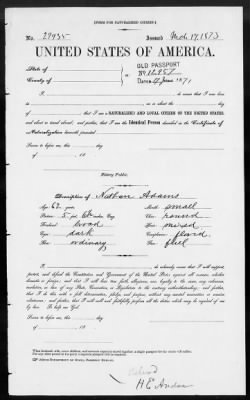 [FORM FOR NATURALIZED CITIZEN.]
No. 29935 Issued Mch 17, 1873
UNITED STATES OF AMERICA.
State of
OLD PASSPORT
County of
No.
Dated 1871
I, do swear that I was born
on or about the day
of ; that I am a NATURALIZED AND LOYAL CITIZEN OF THE UNITED STATES,
and about to travel abroad; and further, that I am the Identical Person described in the Certificate of
Naturalization herewith presented.
Sworn to before me, this day
of 18
Notary Public.
Description of Nathan Adams
Age: 62 years. Mouth: small
Stature: 5 feet inches, Eng. Chin: round
Forehead: broad Hair: mixed
Eyes: dark Complexion: florid
Nose: ordinary Face: full
I, do solemnly swear that I will support,
protect, and defend the Constitution and Government of the United States against all enemies, whether
domestic or foreign; and that I will bear true faith, allegiance, and loyalty to the same, any ordinance,
resolution, or law of any State, Convention, or Legislature to the contrary notwithstanding; and further,
that I do this with a full determination, pledge, and purpose, without any mental reservation or evasion
whatsoever; and further, that I will well and faithfully perform all the duties which may be required of me
by law: So help me God.
Sworn to before me, this day
of 18
H.E.